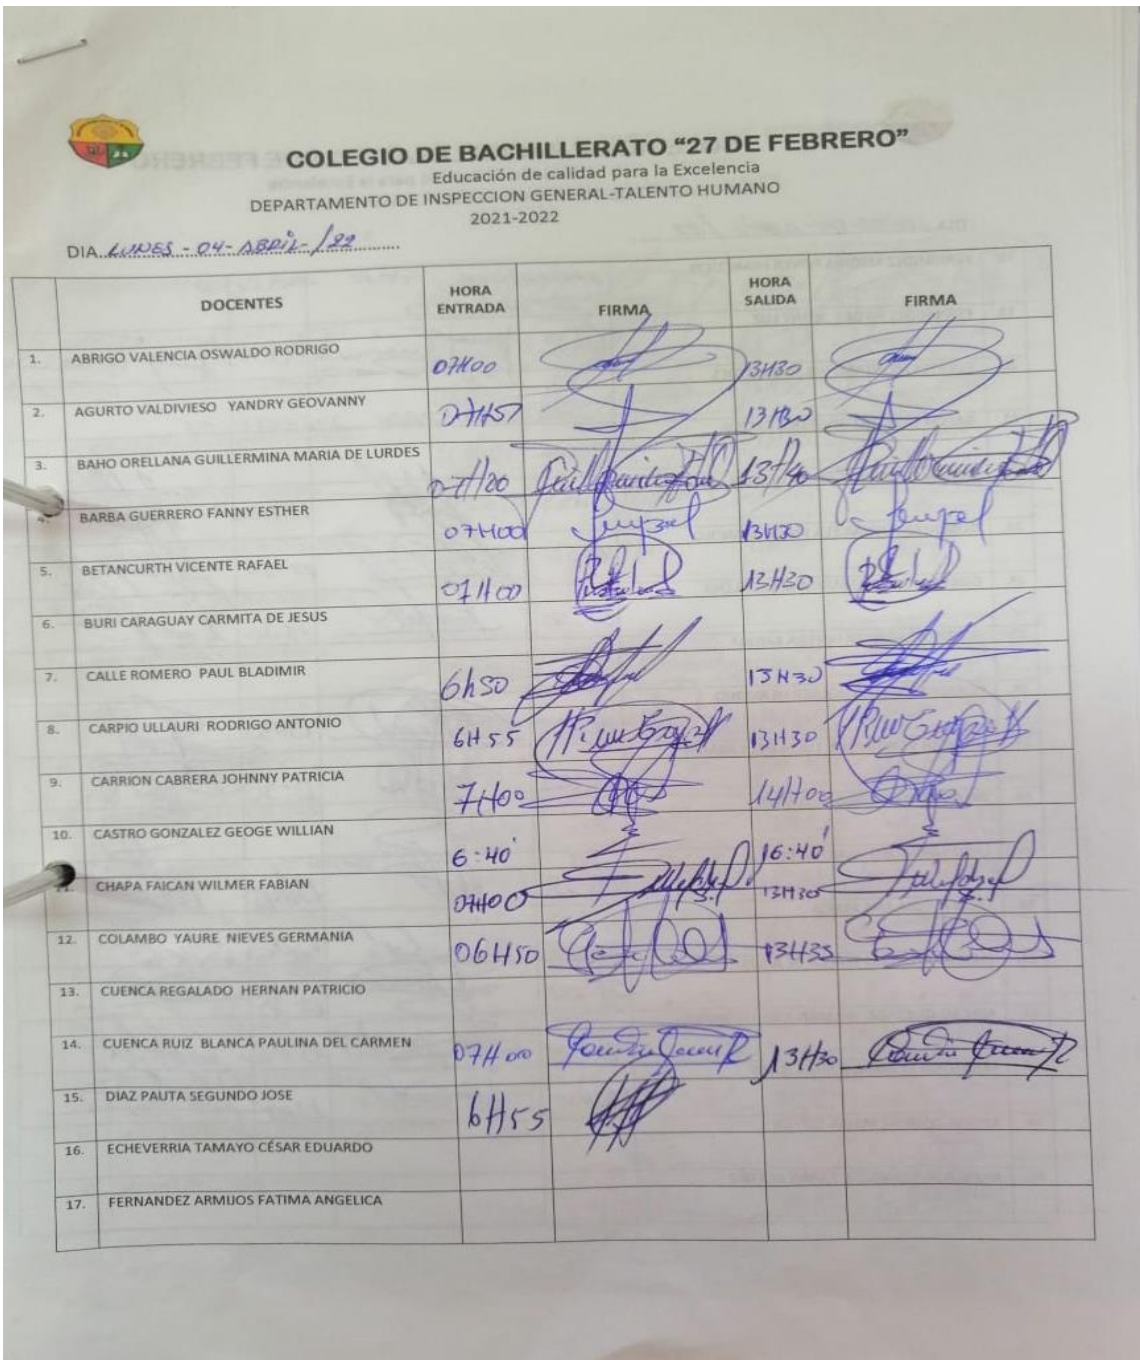 COLEGIO DE BACHILLERATO “27 DE FEBRERO”
Educación de calidad para la Excelencia
DEPARTAMENTO DE INSPECCION GENERAL-TALENTO HUMANO
2021-2022
DIA LUNES - 04 - ABRIL - / 22
DOCENTES HORA ENTRADA FIRMA HORA SALIDA FIRMA
1. ABRIGO VALENCIA OSWALDO RODRIGO 07H00 13H30
2. AGURTO VALDIVIESO YANDRY GEOVANNY 13H30
3. BAHO ORELLANA GUILLERMINA MARIA DE LURDES 07H20 13H40
4. BARBA GUERRERO FANNY ESTHER 07H00 13H30
5. BETANCURTH VICENTE RAFAEL 07H00 13H30
6. BURI CARAGUAY CARMITA DE JESUS
7. CALLE ROMERO PAUL BLADIMIR 6h50 13H30
8. CARPIO ULLAURI RODRIGO ANTONIO 6H55 13H30
9. CARRION CABRERA JOHNNY PATRICIA 7H00 14H00
10. CASTRO GONZALEZ GEOGE WILLIAN 6:40' 16:40'
11. CHAPA FAICAN WILMER FABIAN 07H00 13H30
12. COLAMBO YAURE NIEVES GERMANIA 06H50 13H35
13. CUENCA REGALADO HERNAN PATRICIO
14. CUENCA RUIZ BLANCA PAULINA DEL CARMEN 07H00 13H30
15. DIAZ PAUTA SEGUNDO JOSE 6H55
16. ECHEVERRIA TAMAYO CÉSAR EDUARDO
17. FERNANDEZ ARMIJOS FATIMA ANGELICA